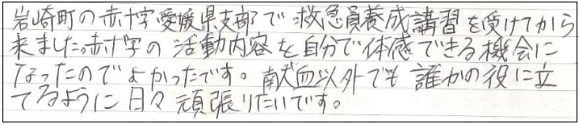 岩崎町の赤十字愛媛県支部で救急員養成講習を受けてから
来ました。赤十字の活動内容を自分で体感できる機会に
なったのでよかったです。献血以外でも誰かの役に立
てるように日々頑張りたいです。